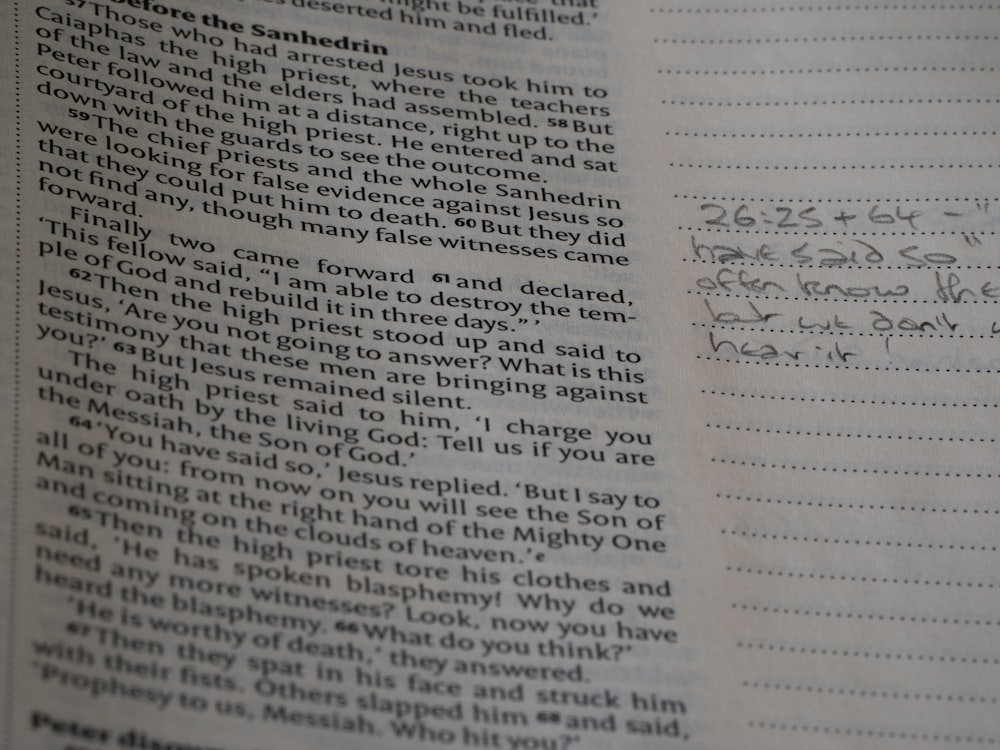 might be fulfilled.'
deserted him and fled.
before the Sanhedrin
57 Those who had arrested Jesus took him to
Caiaphas the high priest, where the teachers
of the law and the elders had assembled. 58 But
Peter followed him at a distance, right up to the
courtyard of the high priest. He entered and sat
down with the guards to see the outcome.
59 The chief priests and the whole Sanhedrin
were looking for false evidence against Jesus so
that they could put him to death. 60 But they did
not find any, though many false witnesses came
forward.
Finally two came forward 61 and declared,
'This fellow said, "I am able to destroy the tem-
ple of God and rebuild it in three days."'
62 Then the high priest stood up and said to
Jesus, 'Are you not going to answer? What is this
testimony that these men are bringing against
you?' 63 But Jesus remained silent.
The high priest said to him, 'I charge you
under oath by the living God: Tell us if you are
the Messiah, the Son of God.'
64 'You have said so,' Jesus replied. 'But I say to
all of you: from now on you will see the Son of
Man sitting at the right hand of the Mighty One
and coming on the clouds of heaven.' e
65 Then the high priest tore his clothes and
said, 'He has spoken blasphemy! Why do we
need any more witnesses? Look, now you have
heard the blasphemy. 66 What do you think?'
'He is worthy of death,' they answered.
67 Then they spat in his face and struck him
with their fists. Others slapped him 68 and said,
'Prophesy to us, Messiah. Who hit you?'
Peter
26:25 + 64 - "
have said so"
often know the
but we don't
hear it!